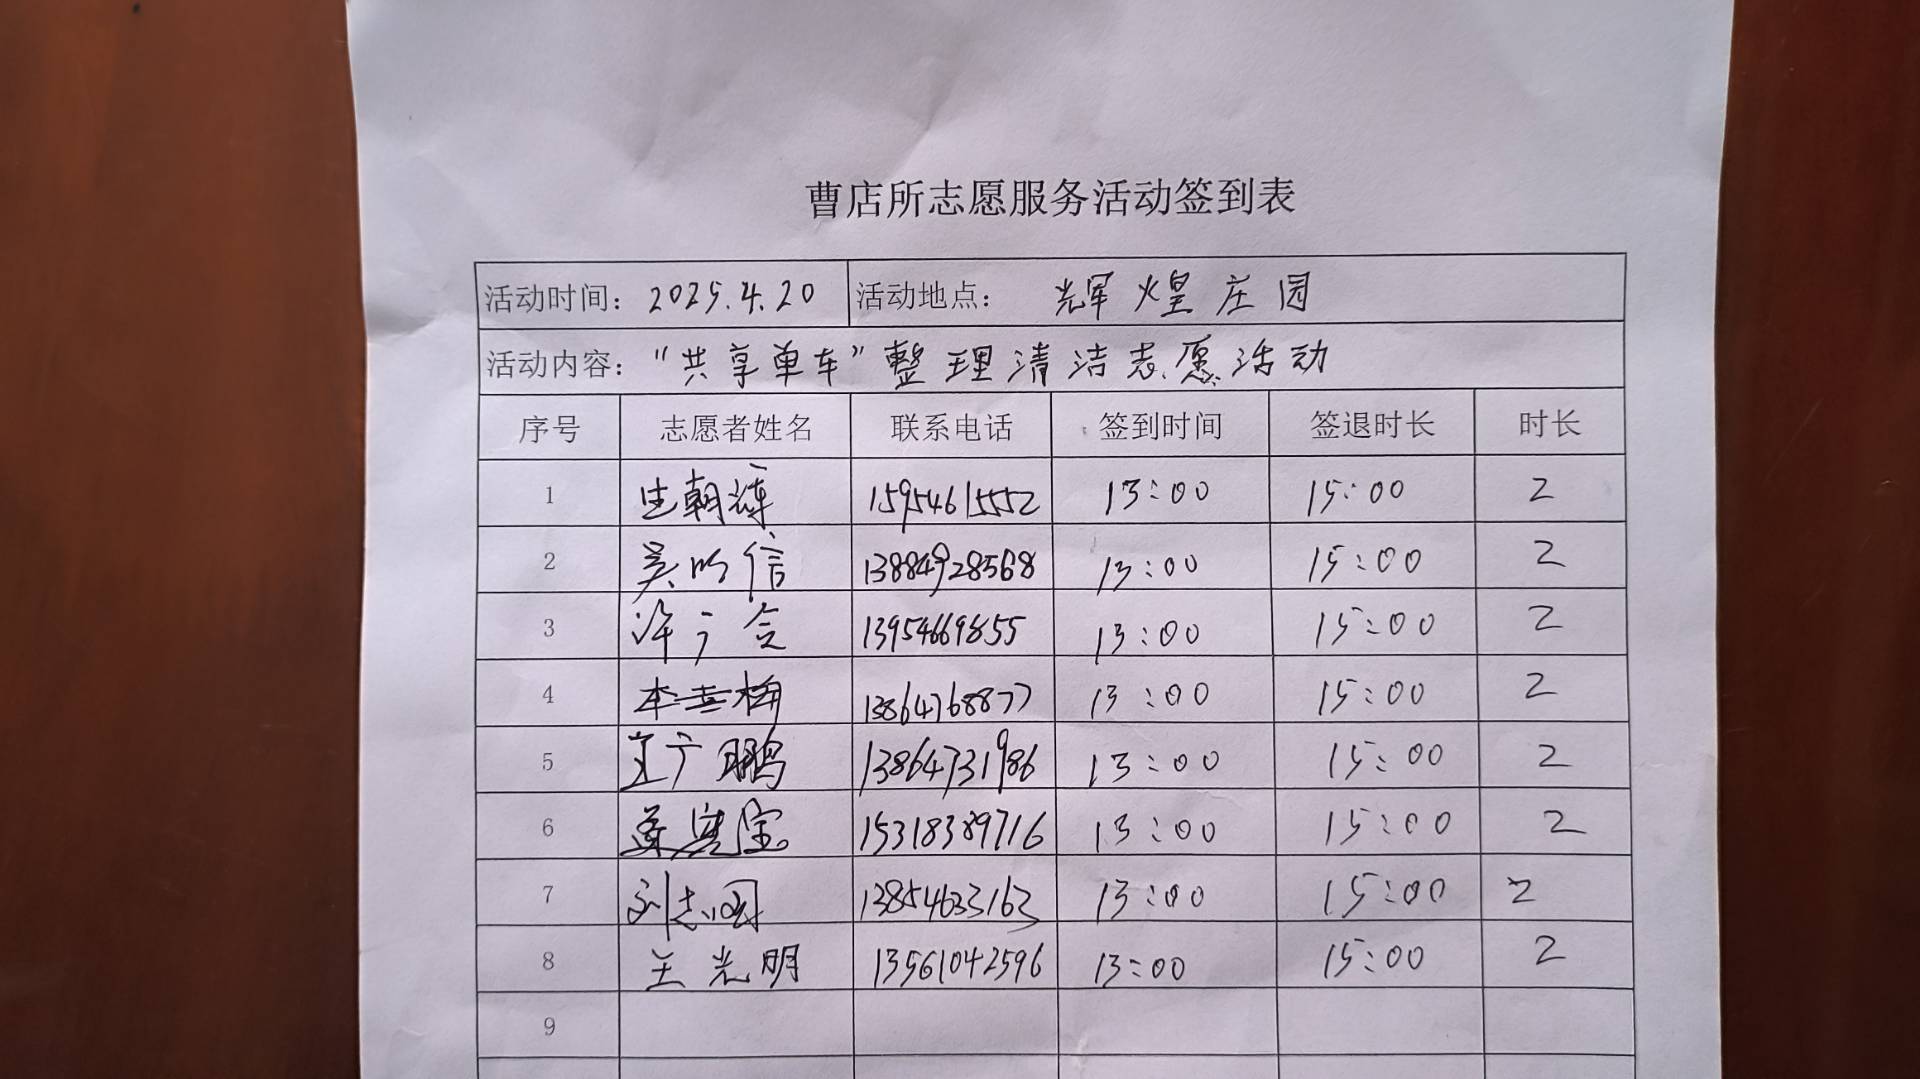 曹店所志愿服务活动签到表
活动时间: 2025.4.20 活动地点: 辉煌庄园
活动内容: "共享单车"整理清洁志愿活动
序号 志愿者姓名 联系电话 签到时间 签退时长 时长
1 生朝辉 15954615552 13:00 15:00 2
2 吴明信 13884928568 13:00 15:00 2
3 许广会 13954669855 13:00 15:00 2
4 李喜梅 13864768877 13:00 15:00 2
5 广鹏 13864731986 13:00 15:00 2
6 宝 15318389716 13:00 15:00 2
7 刘志国 13854633163 13:00 15:00 2
8 王光明 13561042596 13:00 15:00 2
9